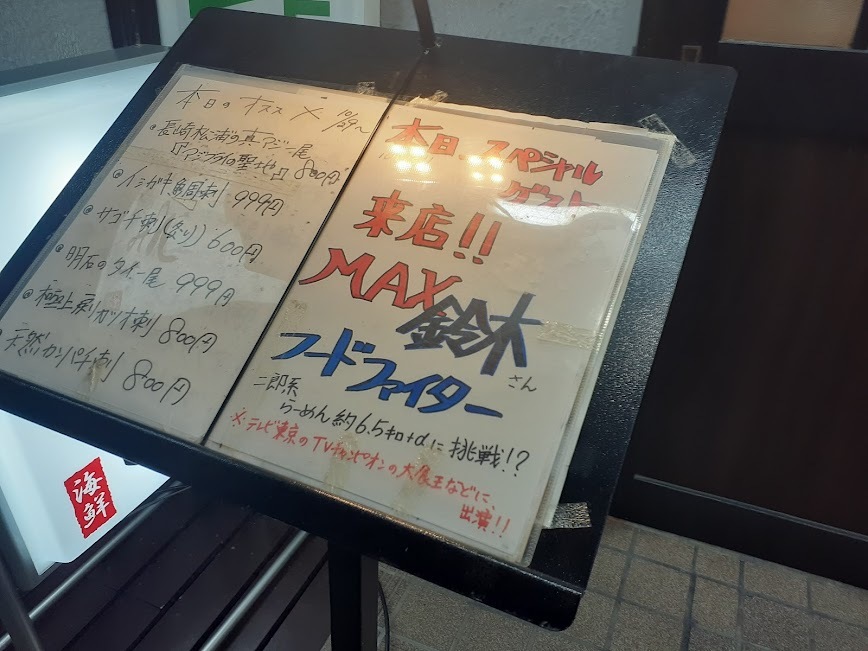 本日のオススメ 10/29～
・長崎松浦の真アジ一尾
『アジフライの聖地』 800円
・イシガキ鯛刺 999円
・サゴチ刺(炙り) 600円
・明石のタイ一尾 999円
・極上戻りガツオ刺 800円
・天然カンパチ刺 800円
本日、スペシャル
ゲスト
来店!!
MAX
鈴木
さん
フードファイター
二郎系
らーめん約6.5キロ+αに挑戦!?
※テレビ東京のTVチャンピオンの大食王などに、
出演!!
海鮮